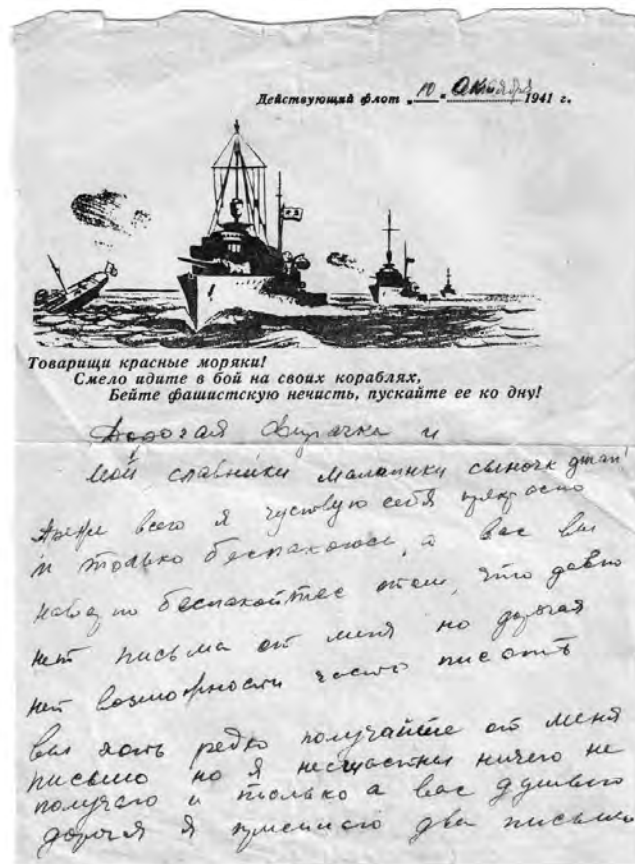 Действующий флот „10" Октября 1941 г.
Товарищи красные моряки!
Смело идите в бой на своих кораблях,
Бейте фашистскую нечисть, пускайте ее ко дну!
Дорогая и
мой славники маленки сыночк джан!
всего я чуствую себя прекрасно
и только беспакоюсь, о вас вы
беспакойтес этом, что давно
нет письма от меня но дорогая
нет возможности часто писать
вы хоть редко получайте от меня
письмо но я несщастни ничего не
получаю и только о вас думаю
дорогая я два письмо